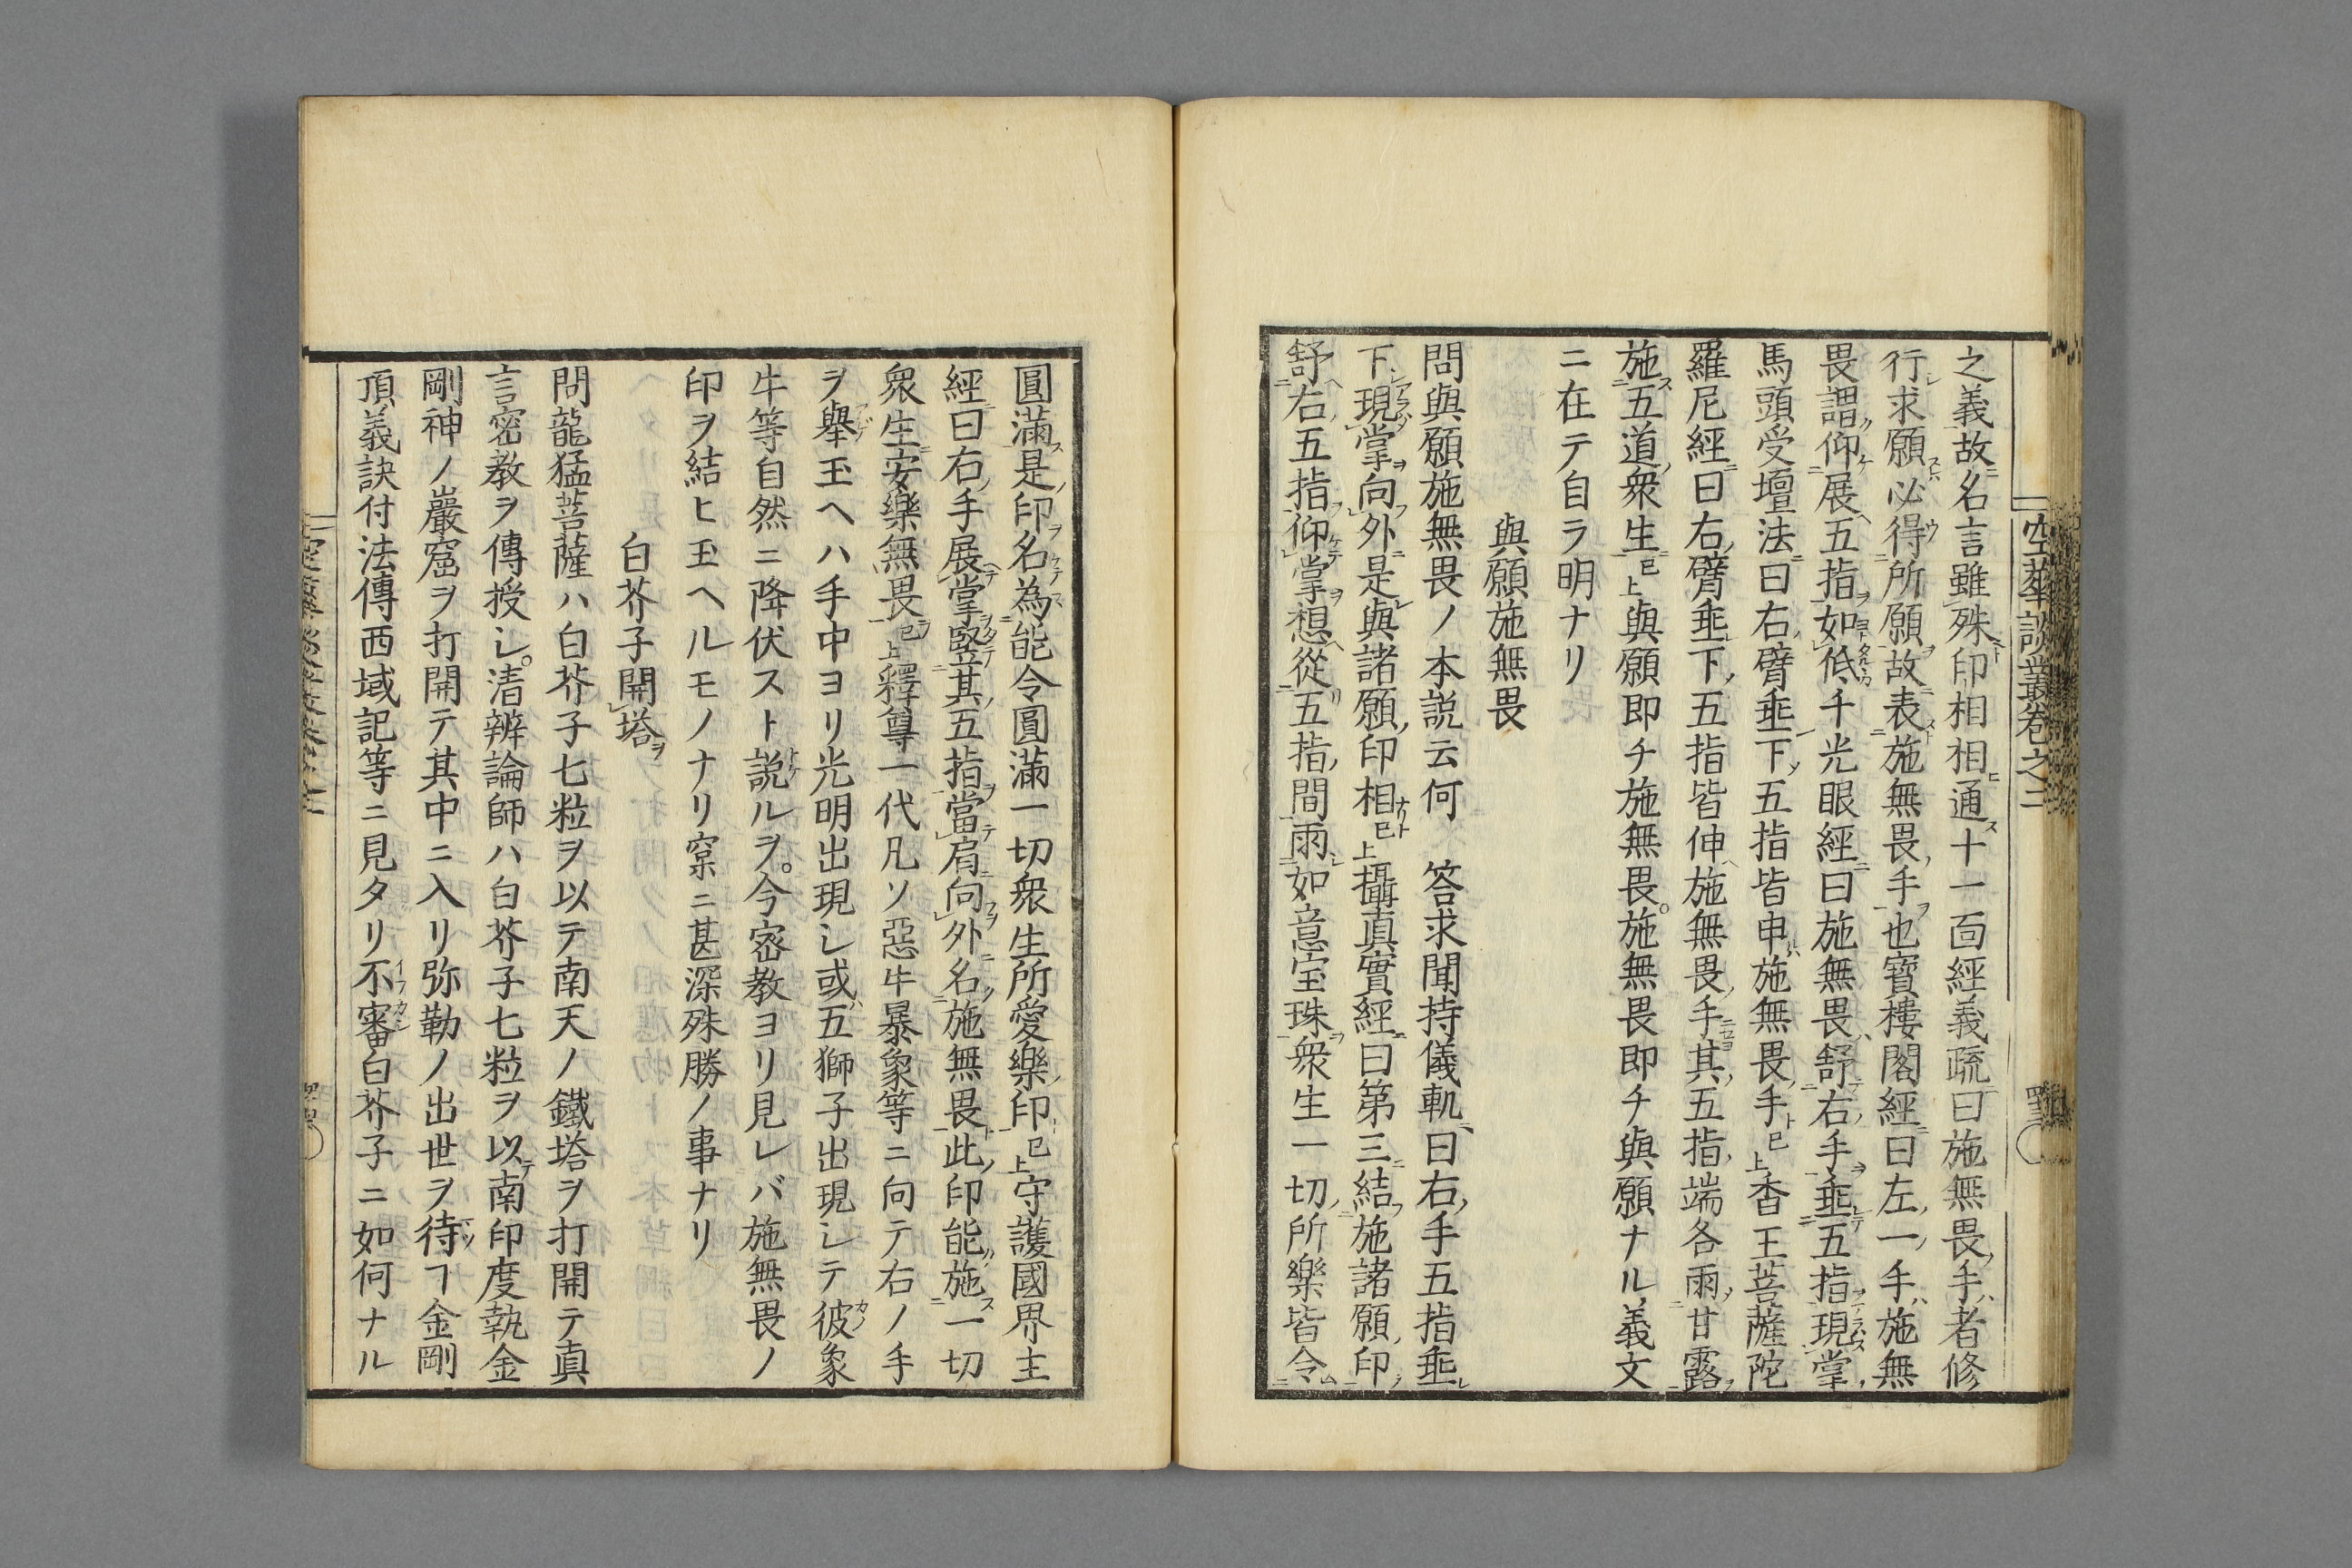 空華談叢卷之三
之義故名言雖殊印相相通十一面經義疏曰施無畏手者修
行求願必得所願故表施無畏手也寶樓閣經曰左一手施無
畏謂仰展五指如低千光眼經曰施無畏舒右手垂五指現掌
馬頭受壇法曰右臂垂下五指皆申施無畏手已上香王菩薩陀
羅尼經曰右臂垂下五指皆伸施無畏手其五指端各雨甘露
施五道衆生已上與願即チ施無畏。施無畏即チ與願ナル義文
ニ在テ自ラ明ナリ
與願施無畏
問與願施無畏ノ本説云何　答求聞持儀軌曰右手五指垂
下現掌向外是與諸願印相已上攝真實經曰第三結施諸願印
舒右五指仰掌想從五指間雨如意宝珠衆生一切所樂皆令
圓滿是印名為能令圓滿一切衆生所愛樂印已上守護國界主
經曰右手展掌竪其五指當肩向外名施無畏此印能施一切
衆生安樂無畏已上釋尊一代凡ソ惡牛暴象等ニ向テ右ノ手
ヲ舉玉ヘハ手中ヨリ光明出現シ或五獅子出現シテ彼象
牛等自然ニ降伏スト説ルヲ。今密教ヨリ見レバ施無畏ノ
印ヲ結ヒ玉ヘルモノナリ寔ニ甚深殊勝ノ事ナリ
白芥子開塔
問龍猛菩薩ハ白芥子七粒ヲ以テ南天ノ鐵塔ヲ打開テ真
言密教ヲ傳授シ。清辨論師ハ白芥子七粒ヲ以テ南印度執金
剛神ノ巖窟ヲ打開テ其中ニ入リ弥勒ノ出世ヲ待ツヿ金剛
頂義訣付法傳西域記等ニ見タリ不審白芥子ニ如何ナル